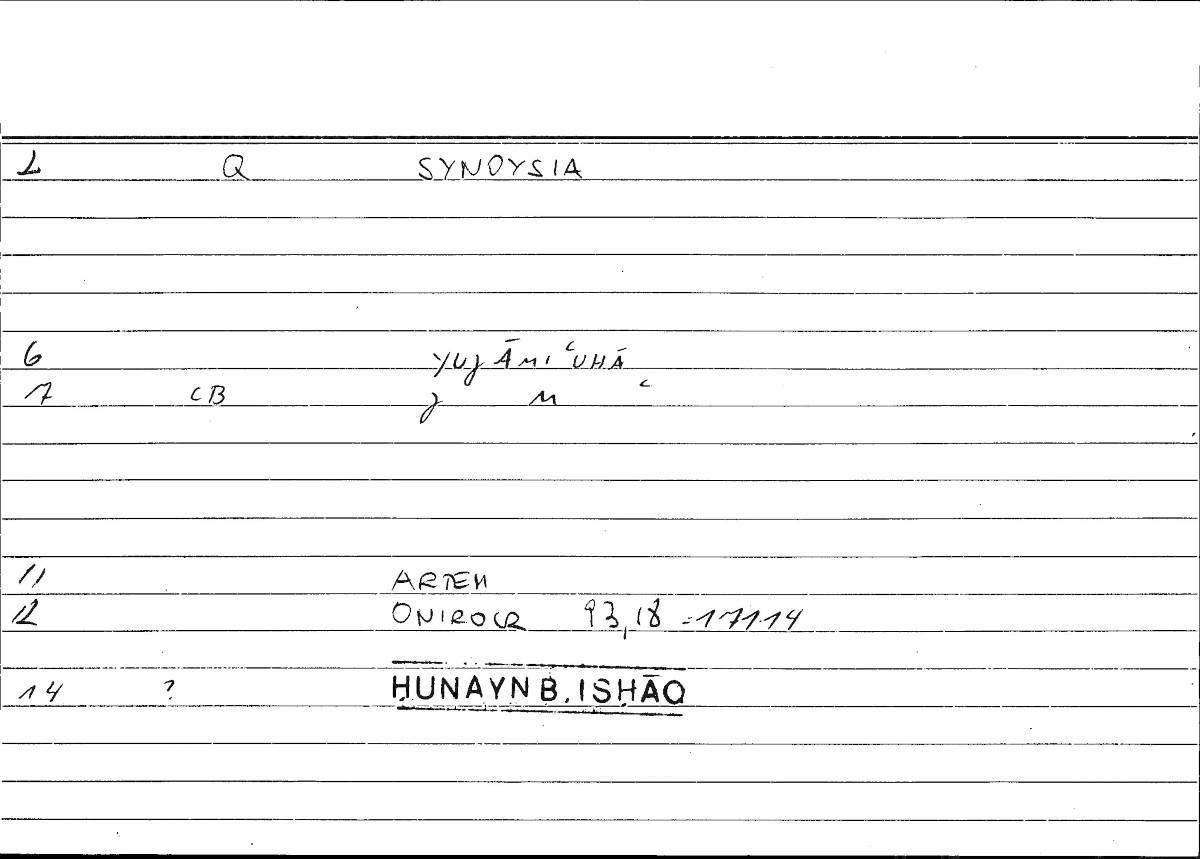 1 Q SYNOYSIA
6 YUJĀMIʿUHĀ
7 CB J M ʿ
11 ARTEM
12 ONIROCR 93,18 = 171.14
14 ? ḤUNAYN B. ISḤĀQ